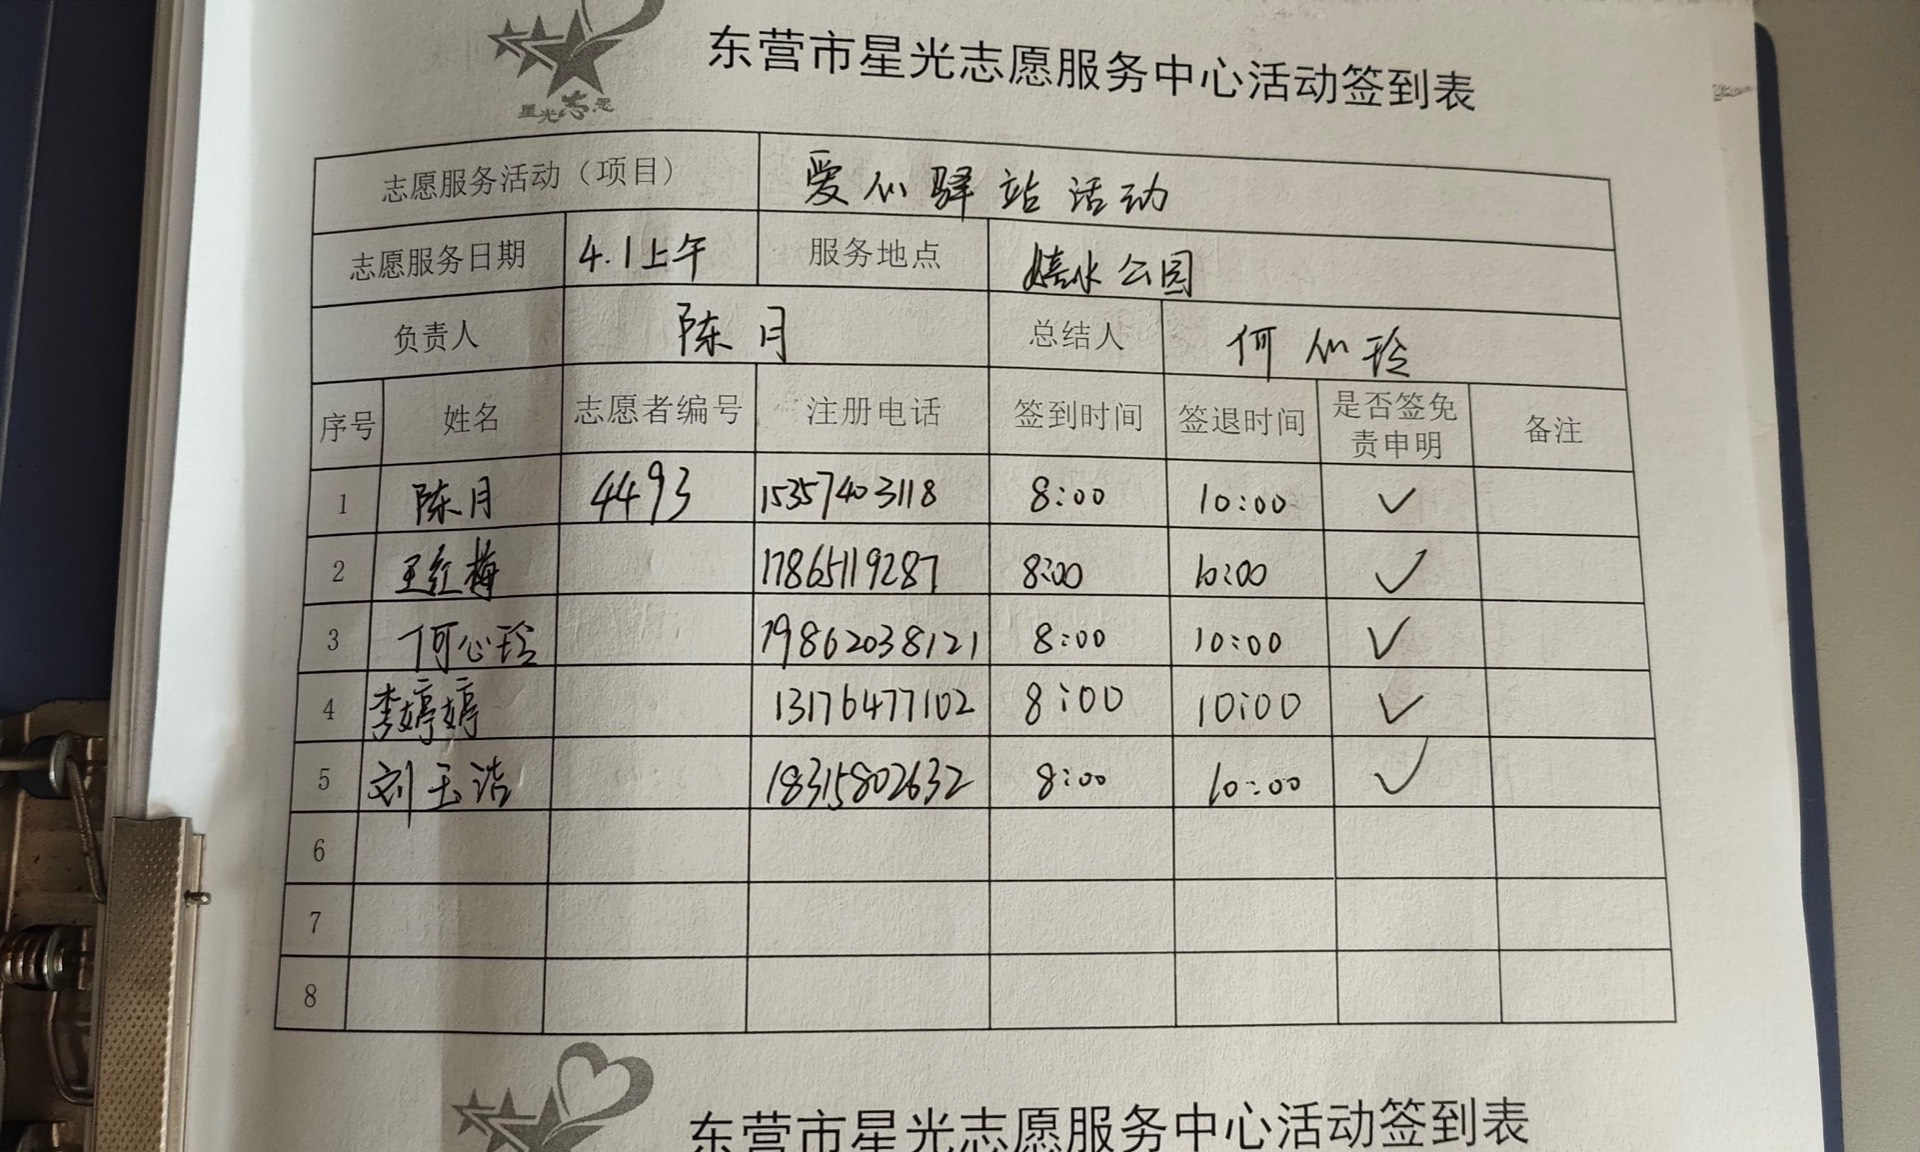 东营市星光志愿服务中心活动签到表
星光志愿
志愿服务活动（项目） 爱心驿站活动
志愿服务日期 4.1上午 服务地点 嬉水公园
负责人 陈月 总结人 何心玲
序号 姓名 志愿者编号 注册电话 签到时间 签退时间 是否签免责申明 备注
1 陈月 4493 15357403118 8:00 10:00 ✓
2 王红梅 17865119287 8:00 10:00 ✓
3 何心玲 19862038121 8:00 10:00 ✓
4 李婷婷 13176477102 8:00 10:00 ✓
5 刘玉洁 18315802632 8:00 10:00 ✓
6
7
8
东营市星光志愿服务中心活动签到表